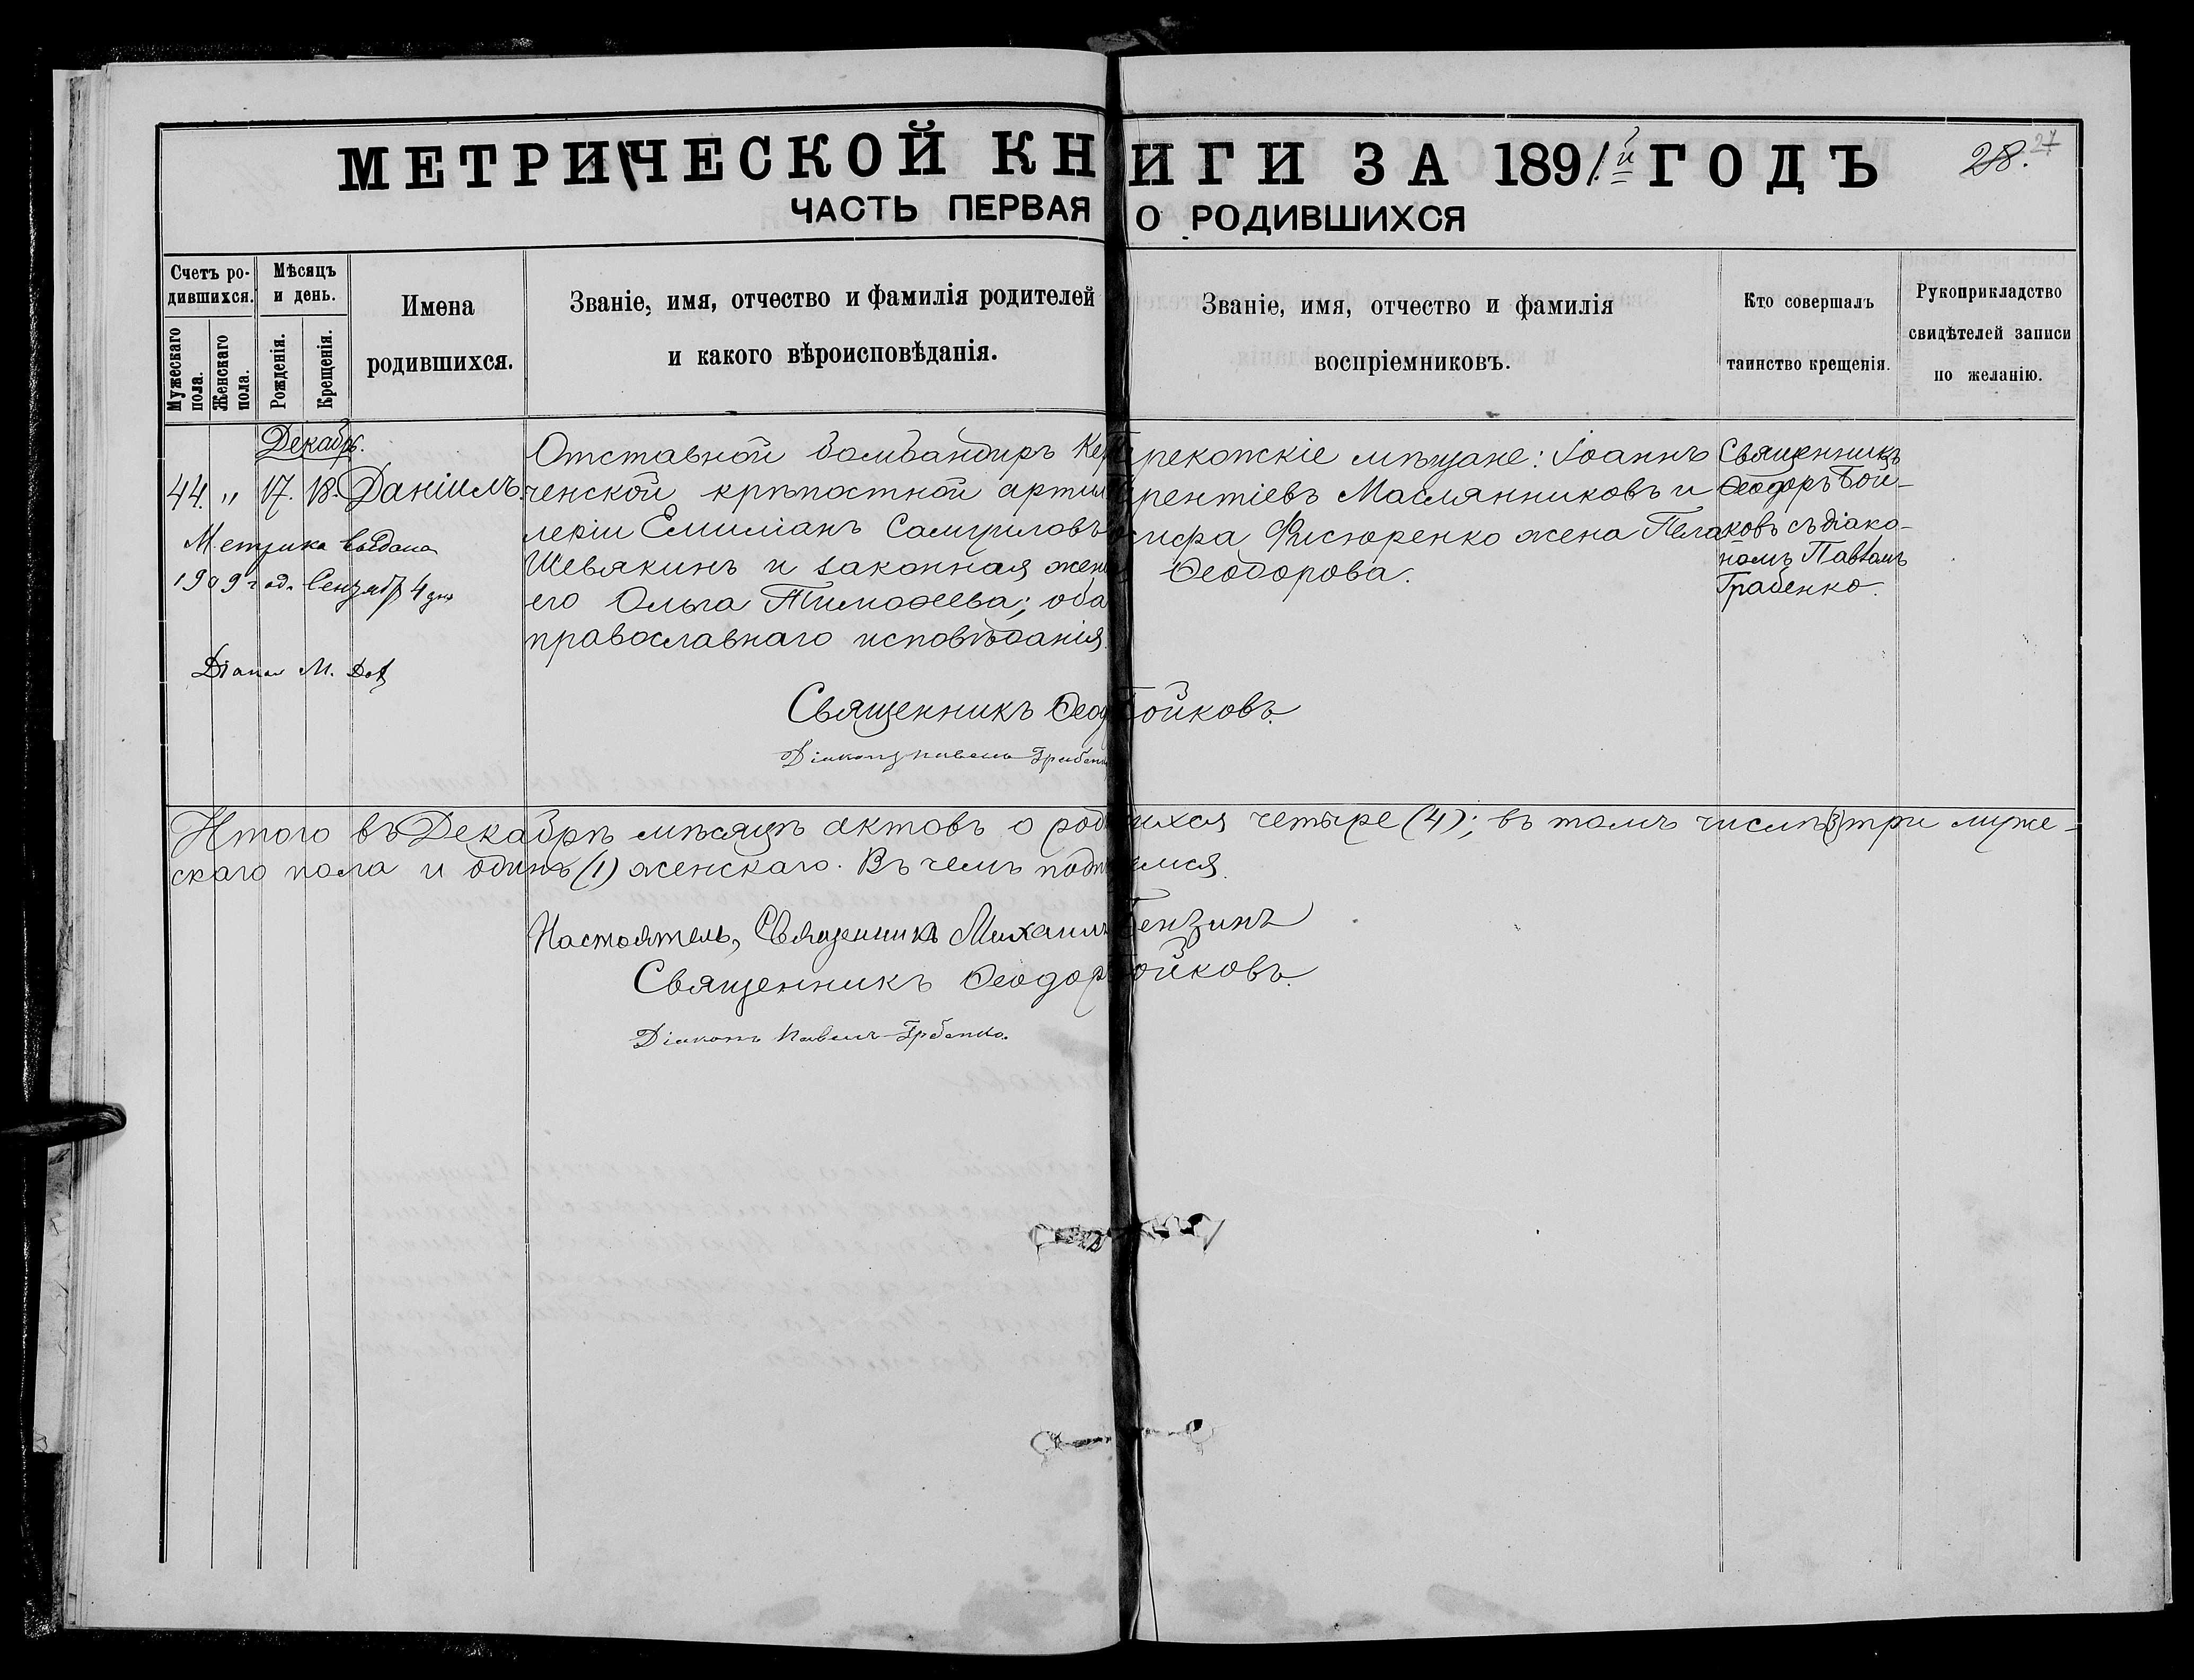 МЕТРИЧЕСКОЙ КНИГИ ЗА 1891.й ГОДЪ
28. 27
ЧАСТЬ ПЕРВАЯ О РОДИВШИХСЯ
Счетъ родившихся.
Мужескаго пола.
Женскаго пола.
Мѣсяцъ и день.
Рожденія.
Крещенія.
Имена родившихся.
Званіе, имя, отчество и фамилія родителей
и какого вѣроисповѣданія.
Званіе, имя, отчество и фамилія
воспріемниковъ.
Кто совершалъ
таинство крещенія.
Рукоприкладство
свидѣтелей записи
по желанію.
Декабрь.
44. " 17. 18. Даніилъ.
Метрика выдана
1909 год. Сентяб 4 дня
Отставной бомбандиръ Кер
ченской крѣпостной артил
леріи Емиліанъ Самуиловъ
Шевякинъ и законная жена
его Ольга Тимоѳеева; оба
православнаго исповѣданія.
Перекопскіе мѣщане: Іоаннъ
рентіевъ Маслянниковъ и
сифа Фисюренко жена Пела
Ѳеодорова.
Священникъ
Ѳеодоръ Бой-
ковъ съ діако-
номъ Павломъ
Грабенко.
Священникъ Ѳеод Бойковъ.
Діаконъ Павелъ Грабен
Итого въ Декабрѣ мѣсяцѣ актовъ о родившихся четыре (4); въ томъ числѣ (3) три муже-
скаго пола и одинъ (1) женскаго. Въ чемъ подпишемся.
Настоятель, Священникъ Михаилъ Бензинъ
Священникъ Ѳеодоръ Бойковъ.
Діаконъ Павелъ Грабенко.